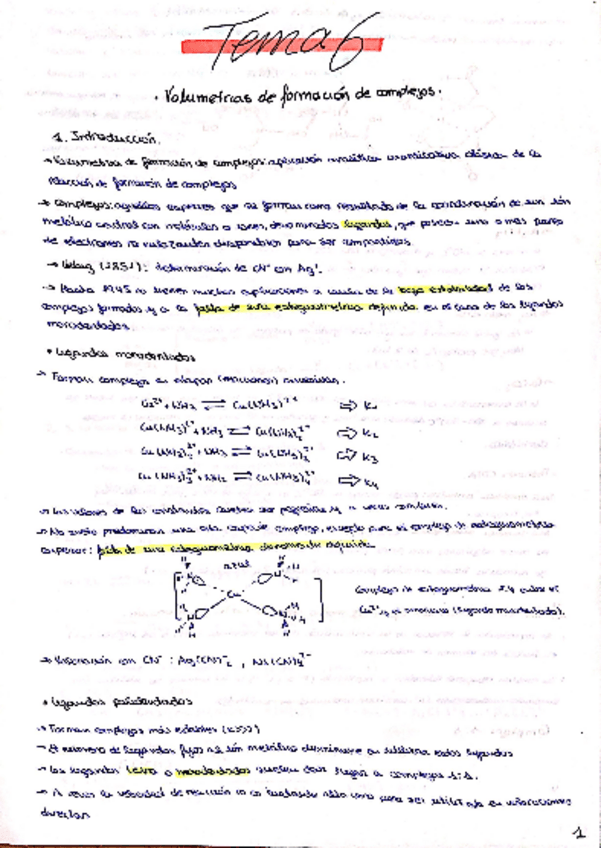 Tema 6
· Volumetrías de formación de complejos ·
1. Introducción.
→ Volumetrías de formación de complejos: aplicación analítica cuantitativa clásica de la
reacción de formación de complejos
→ Complejos: aquellas especies que se forman como resultado de la coordinación de un ión
metálico central con moléculas o iones, denominados ligandos, que poseen uno o más pares
de electrones no disponibles para ser compartidos.
→ Liebig (1851): determinación de CN⁻ con Ag⁺.
→ Hasta 1945 no tienen muchas aplicaciones a causa de la baja estabilidad de los
complejos formados y a la falta de una estequiometría definida en el caso de los ligandos
monodentados
• Ligandos monodentados
→ Forman complejos en etapas sucesivas.
Cu²⁺ + NH₃ ⇌ Cu(NH₃)²⁺ ⇨ K₁
Cu(NH₃)²⁺ + NH₃ ⇌ Cu(NH₃)₂²⁺ ⇨ K₂
Cu(NH₃)₂²⁺ + NH₃ ⇌ Cu(NH₃)₃²⁺ ⇨ K₃
Cu(NH₃)₃²⁺ + NH₃ ⇌ Cu(NH₃)₄²⁺ ⇨ K₄
→ Los valores de las constantes suelen ser pequeños y a veces similares.
→ No suele predominar una sola especie de complejo, excepto para el complejo de estequiometría
superior: falta de una estequiometría claramente definida
azul
Cu
Complejo de estequiometría 1:4 entre el
Cu²⁺ y el amoniaco (ligando monodentado).
→ con CN⁻ : Ag(CN)₂⁻ , Ni(CN)₄²⁻
• Ligandos polidentados
→ Forman complejos más estables
→ El número de ligandos fijos al ión metálico disminuye al utilizar estos ligandos
→ Los ligandos tetra o hexadentados suelen dar lugar a complejos 1:1.
→ A veces la velocidad de reacción no es bastante alta como para ser utilizada en valoraciones
directas
1